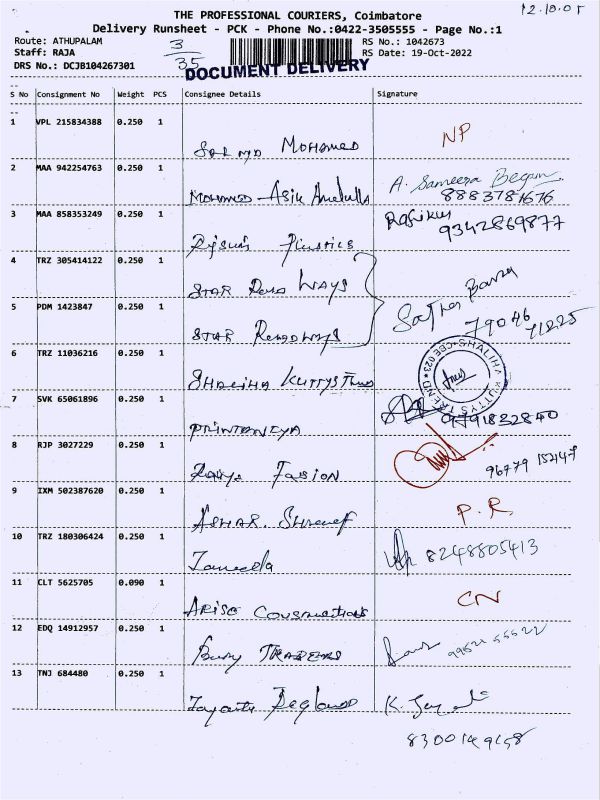 12.10.05
THE PROFESSIONAL COURIERS, Coimbatore
Delivery Runsheet - PCK - Phone No.:0422-3505555 - Page No.:1
Route: ATHUPALAM
Staff: RAJA
DRS No.: DCJB104267301
3
35
RS No.: 1042673
RS Date: 19-Oct-2022
DOCUMENT DELIVERY
S No Consignment No Weight PCS Consignee Details Signature
1 VPL 215834388 0.250 1 Mohamed NP
2 MAA 942254763 0.250 1 Mohamed Asik A. Sameera Begum
8883781676
3 MAA 858353249 0.250 1 Plastics Rafikul
9342869877
4 TRZ 305414122 0.250 1 STAR Road Ways
5 PDM 1423847 0.250 1 STAR Roadways
79046 71225
6 TRZ 11036216 0.250 1 SHALIHA KUTTYS Trend
SHALIHA KUTTYS TREND CBE 023
7 SVK 65061896 0.250 1 PRINTANEYA 9791832840
8 RJP 3027229 0.250 1 Fasion 96779 15447
9 IXM 502387620 0.250 1 P.R.
10 TRZ 180306424 0.250 1 8248805413
11 CLT 5625705 0.090 1 ARISE Constructions CN
12 EDQ 14912957 0.250 1 TRADERS 99521 55522
13 TNJ 684480 0.250 1 K.
8300149158